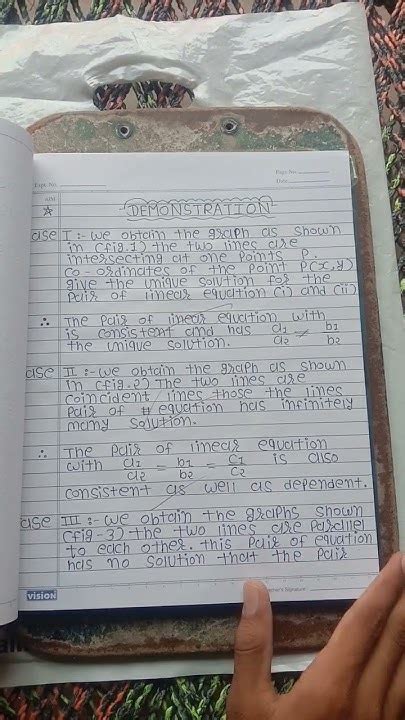 Expt. No.
Page No.
Date
AIM
DEMONSTRATION
ase I :- we obtain the graph as shown
in (fig.1) the two lines are
intersecting at one points P.
co-ordinates of the point P(x,y)
give the unique solution for the
pair of linear equation (i) and (ii)
∴ The pair of linear equation with
is consistent and has a1/a2 ≠ b1/b2
the unique solution.
ase II :- we obtain the graph as shown
in (fig-2) The two lines are
coincident lines those the lines
pair of equation has infinitely
many solution.
∴ The pair of linear equation
with a1/a2 = b1/b2 = c1/c2 is also
consistent as well as dependent.
ase III :- we obtain the graphs shown
(fig-3) the two lines are parallel
to each other. this pair of equation
has no solution that the pair
VISION
Signature